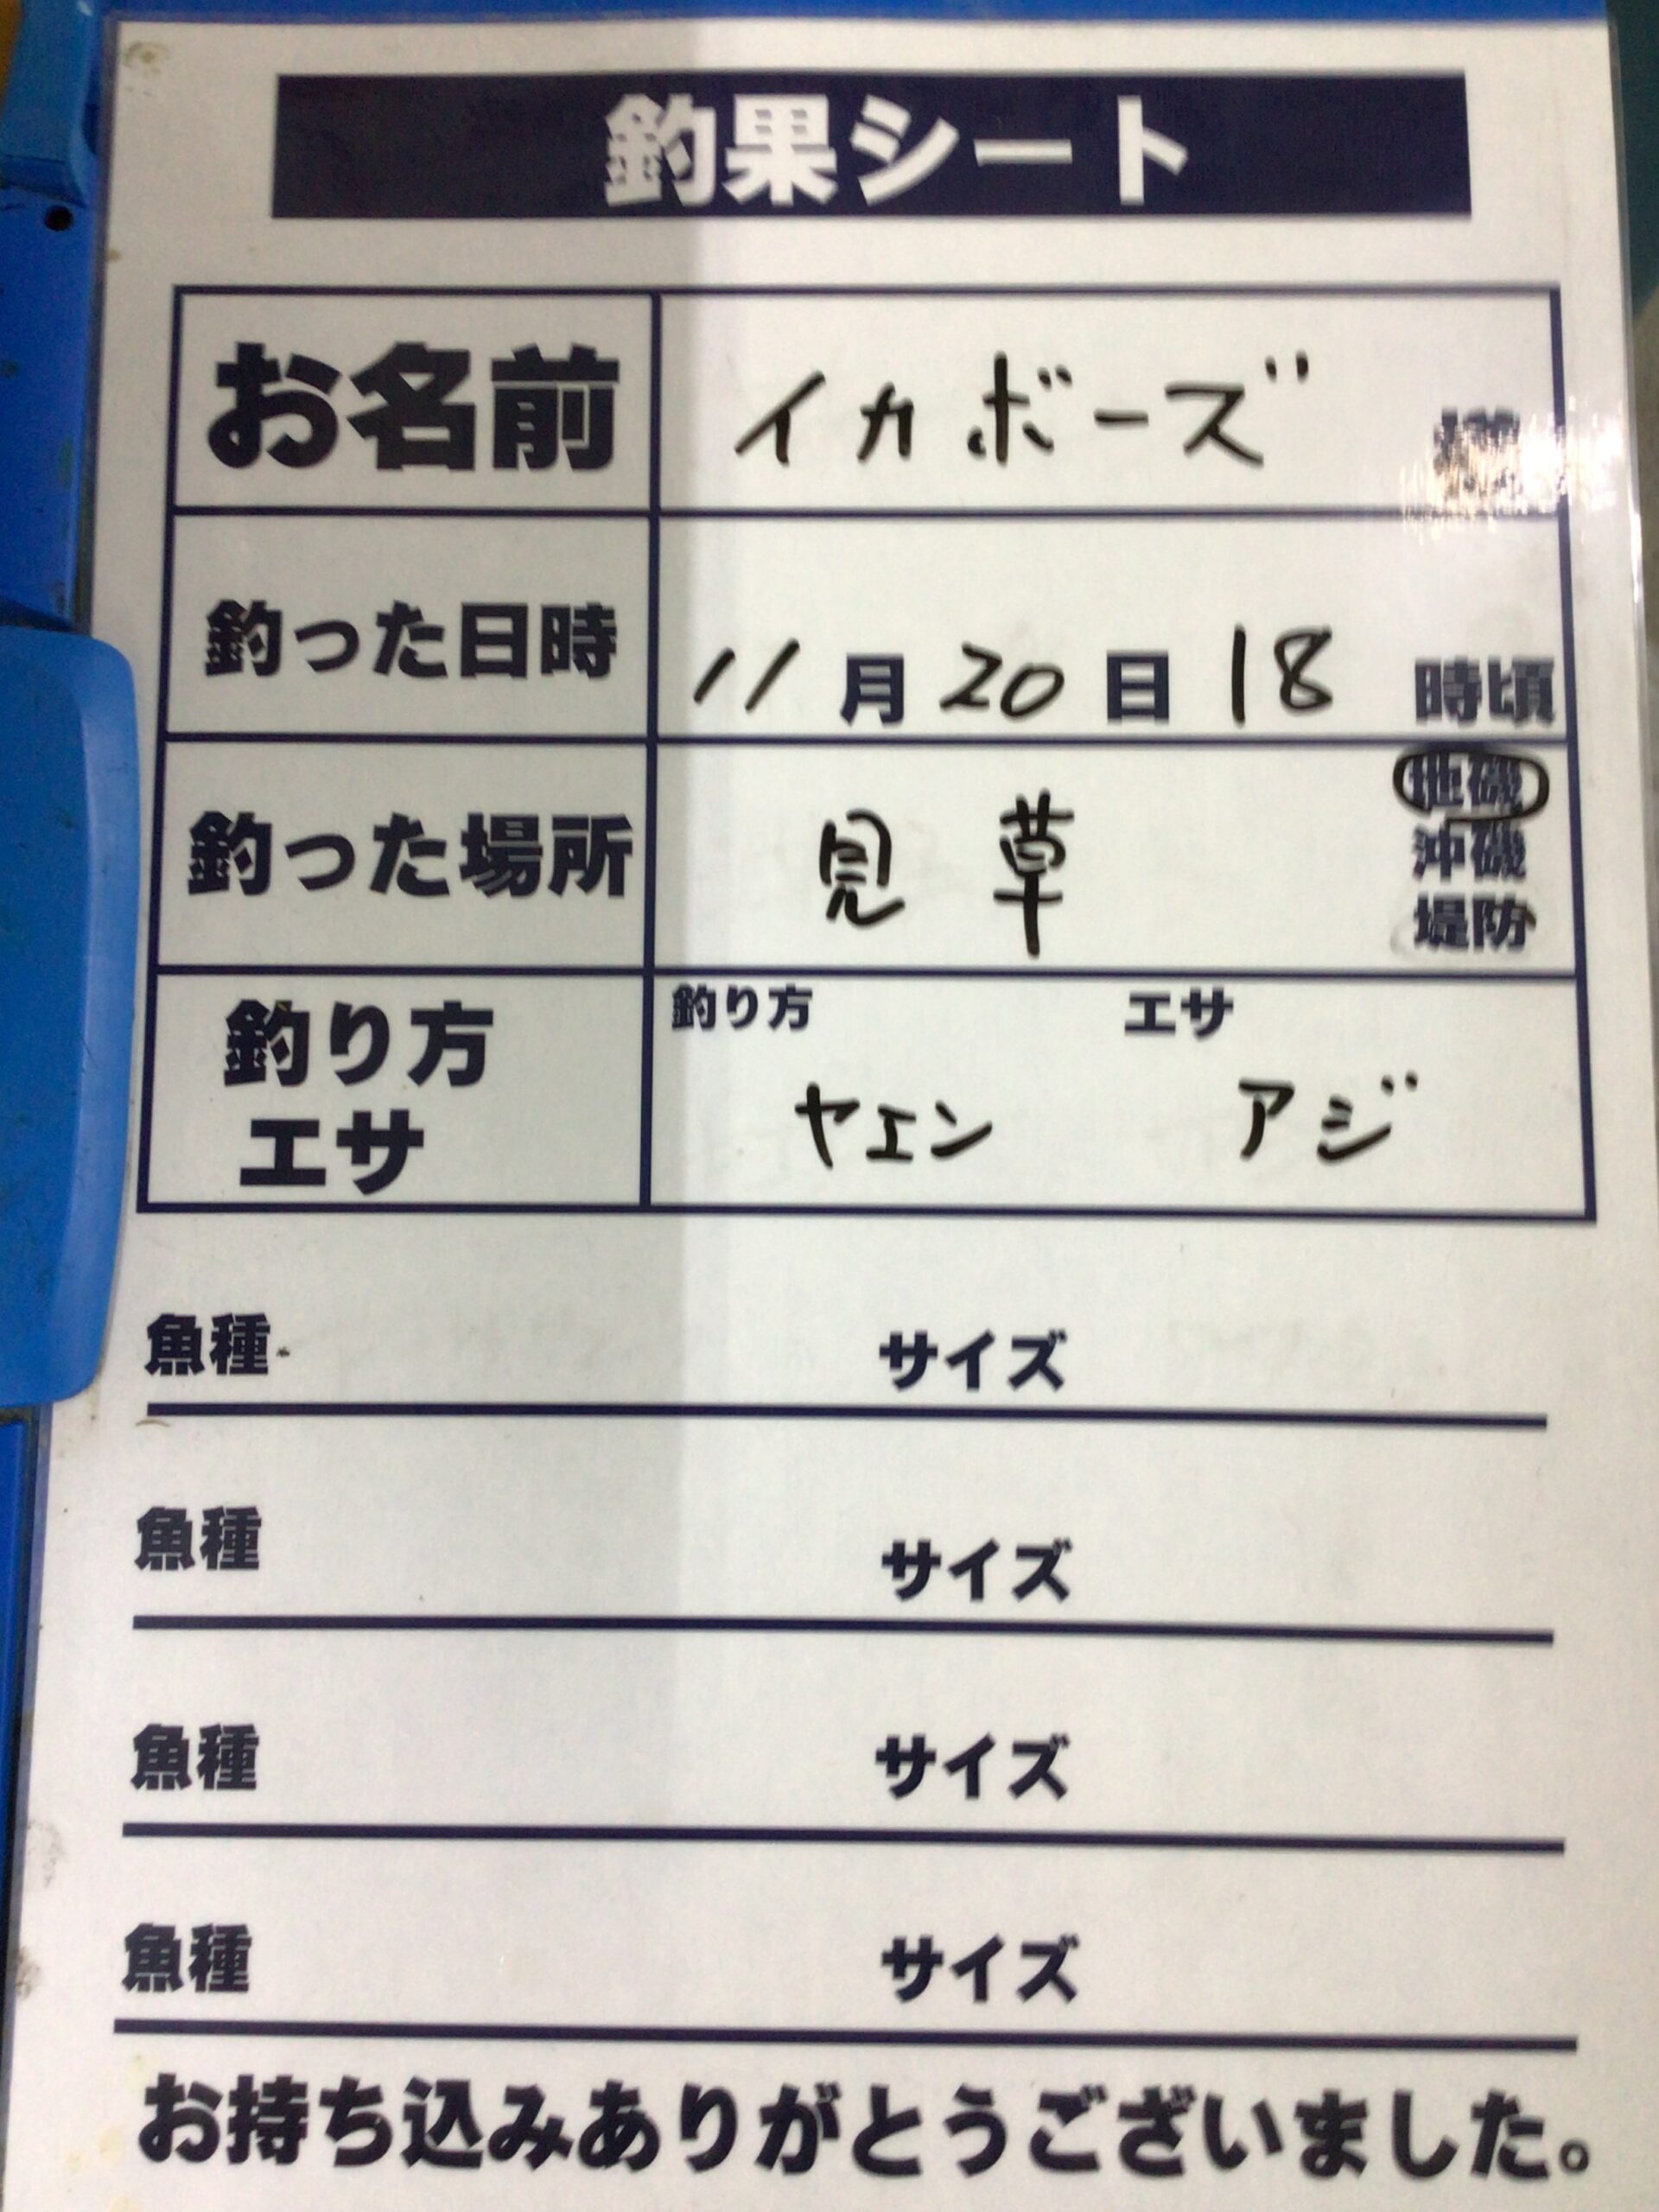 釣果シート
お名前 イカボーズ 様
釣った日時 11月20日18時頃
釣った場所 見草 地磯
沖磯
堤防
釣り方 エサ
釣り方
エサ
ヤエン アジ
魚種 サイズ
魚種 サイズ
魚種 サイズ
魚種 サイズ
お持ち込みありがとうございました。